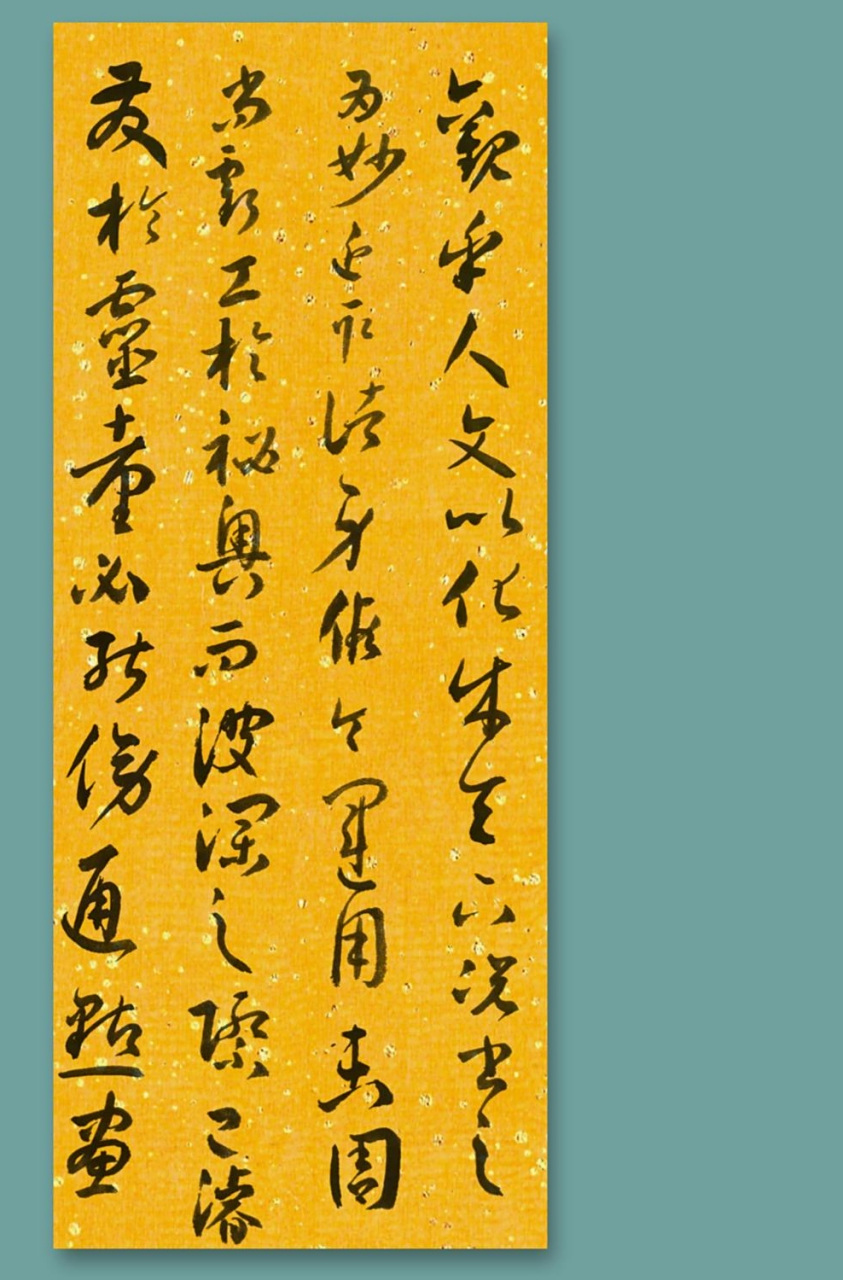 觀乎人文以化成天下況書之
為妙近取諸身假令運用未周
尚虧工於祕奧而波瀾之際已濬
發於靈臺必能傍通點畫